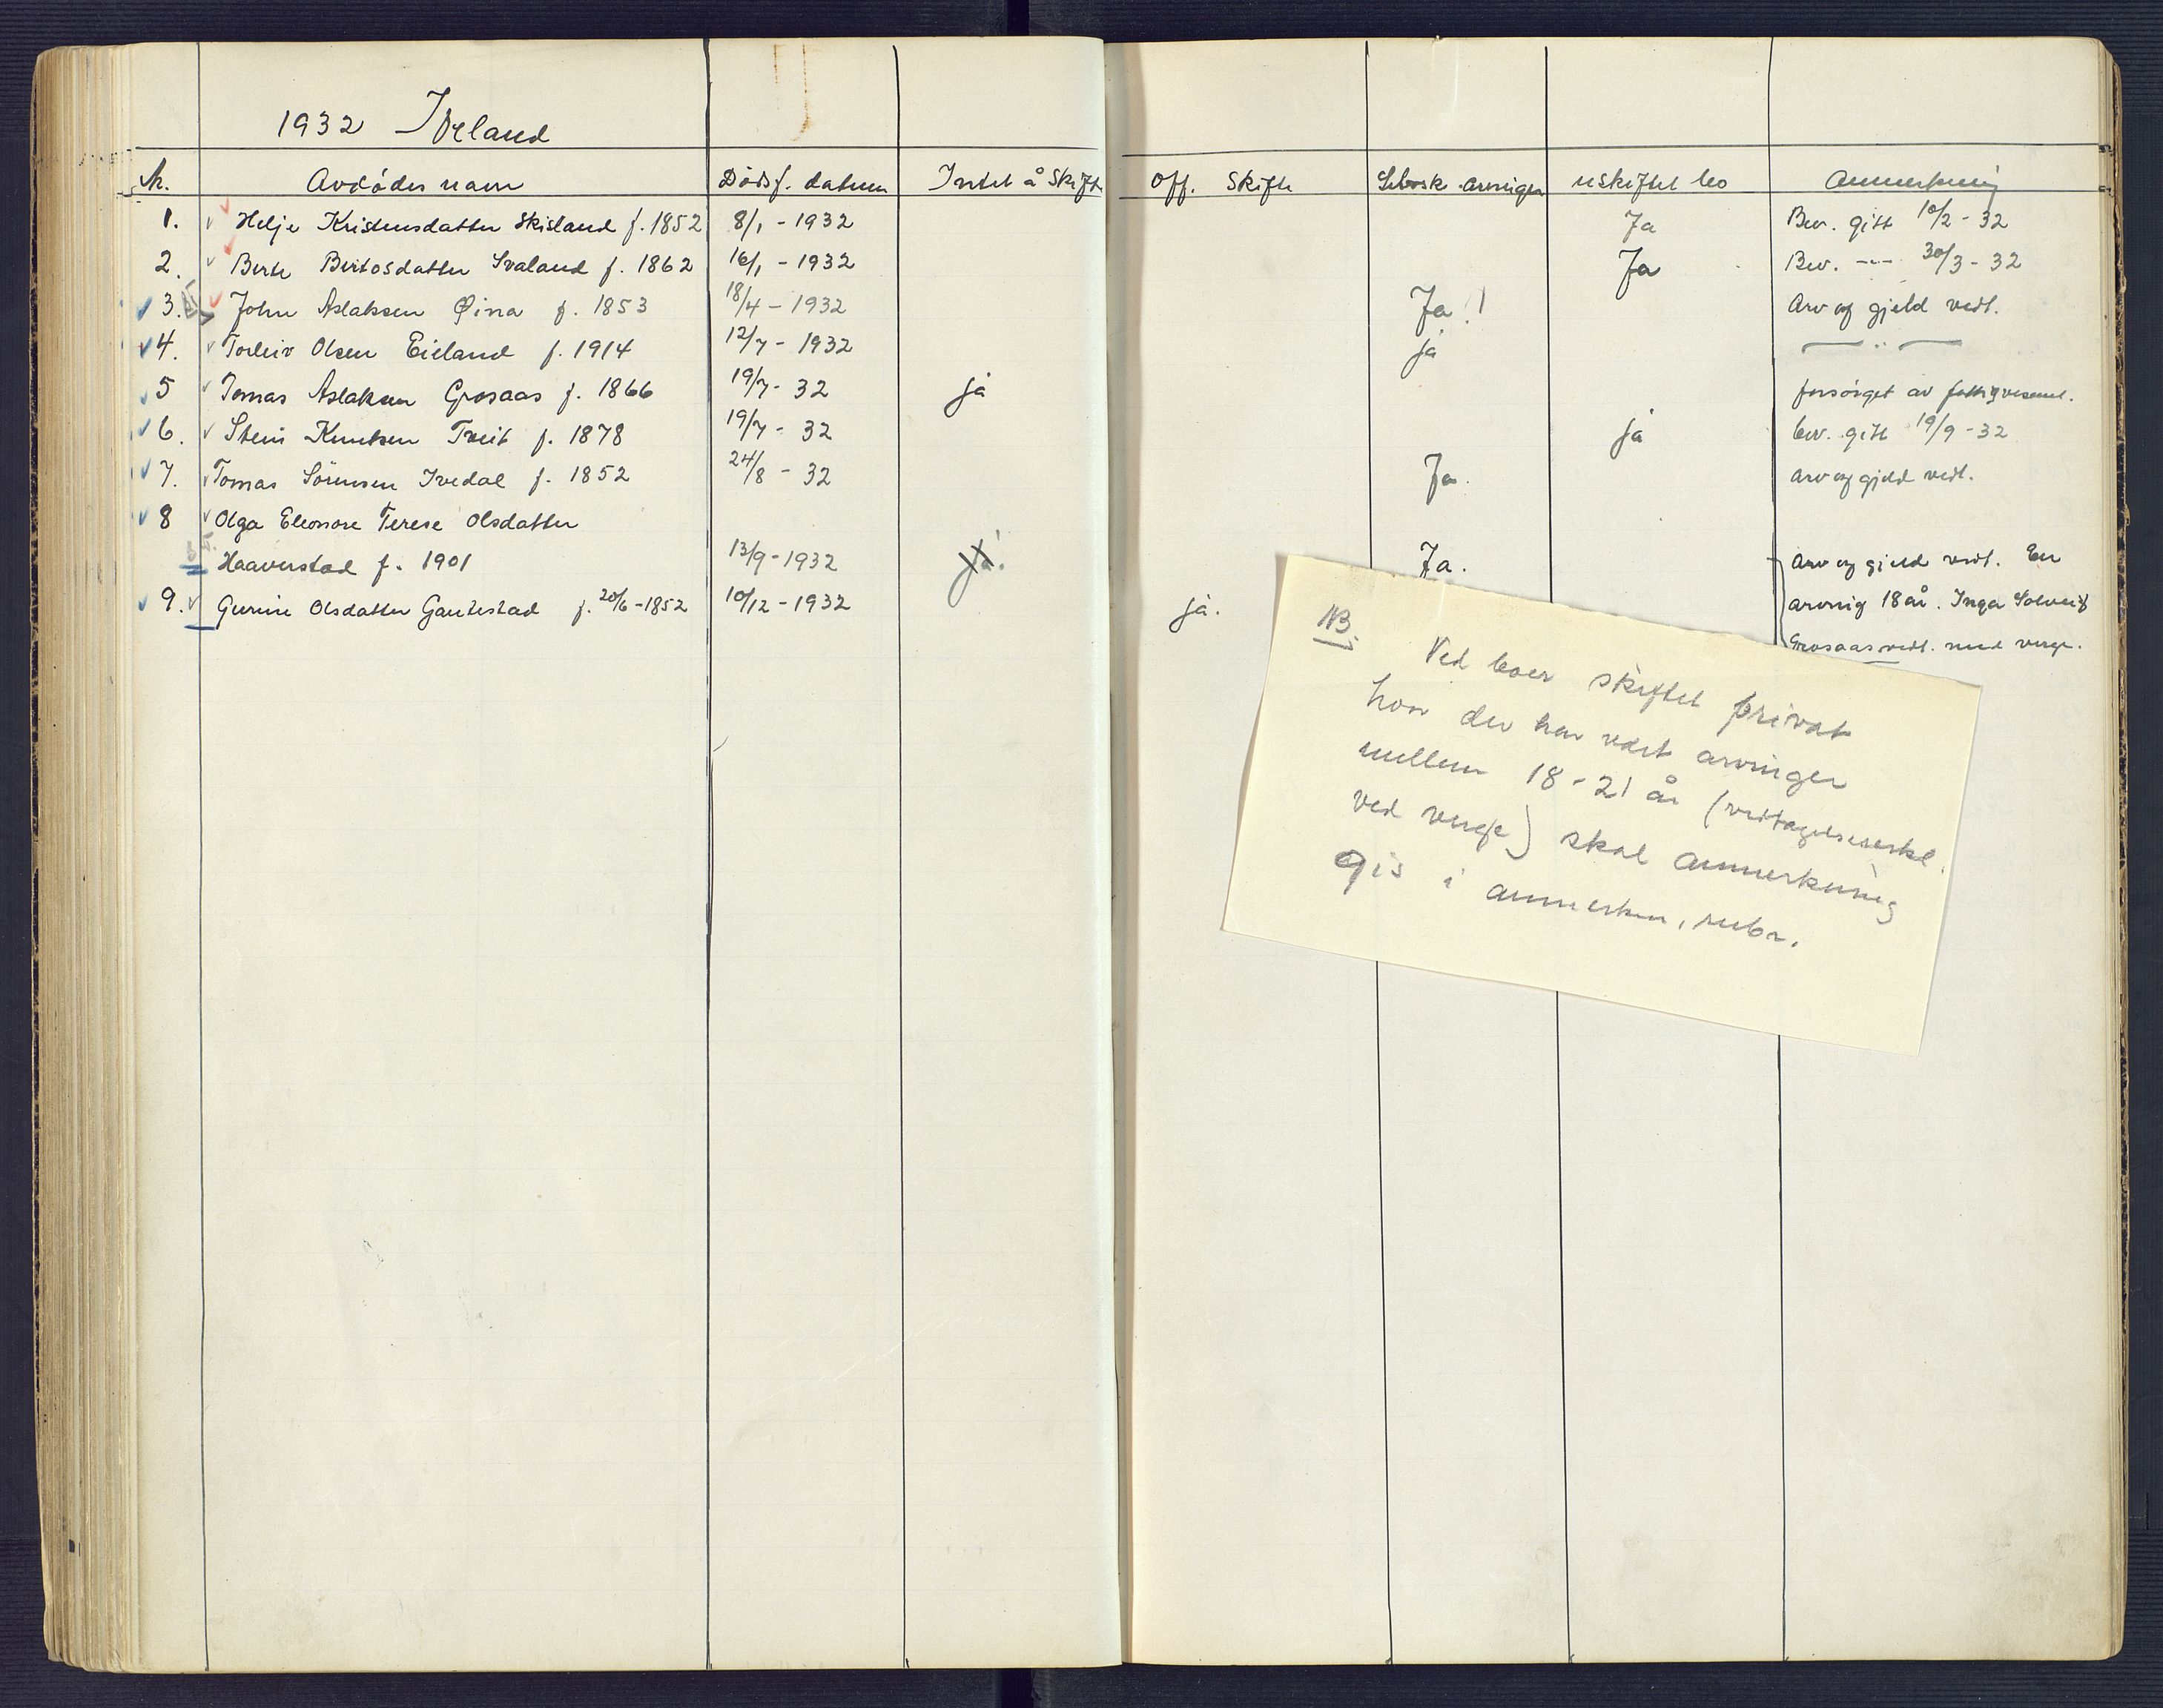 1932 Iveland
Nr. Avdødes navn Dødsf. datum Intet å Skifte Off. Skifte Selvsk. arvinger uskiftet bo Anmerkning
1. Helje Kristensdatter Skisland f. 1852 8/1 - 1932 Ja Bev. gitt 10/2 - 32
2. Berte Bertosdatter Svaland f. 1862 16/1 - 1932 Ja Bev. -"- 30/3 - 32
3. John Aslaksen f. 1853 18/4 - 1932 Ja! Arv og gjeld vedt.
4. Torleiv Olsen Eieland f. 1914 12/7 - 1932 ja — " —
5 Tomas Aslaksen Grosaas f. 1866 19/7 - 32 ja forsørget av fattigvesenet.
6. Stein Knutsen Tveit f. 1878 19/7 - 32 ja bev. gitt 19/9 - 32
7. Tomas Sørensen Ivedal f. 1852 24/8 - 32 Ja. arv og gjeld vedt.
8 Olga Eleonore Terese Olsdatter
Haaverstad f. 1901 13/9 - 1932 ja. Ja. Arv og gjeld vedt. En
9. Gurine Olsdatter Gautestad f. 20/6 - 1852 10/12 - 1932 ja. arving 18 år. Inga Solveig
Grosaas vedt. med verge.
NB.
Ved boer skiftet privat
hvor der har vært arvinger
mellem 18 - 21 år (vedtagelseserkl.
ved verge) skal anmerkning
gis i anmerkn. rubr.